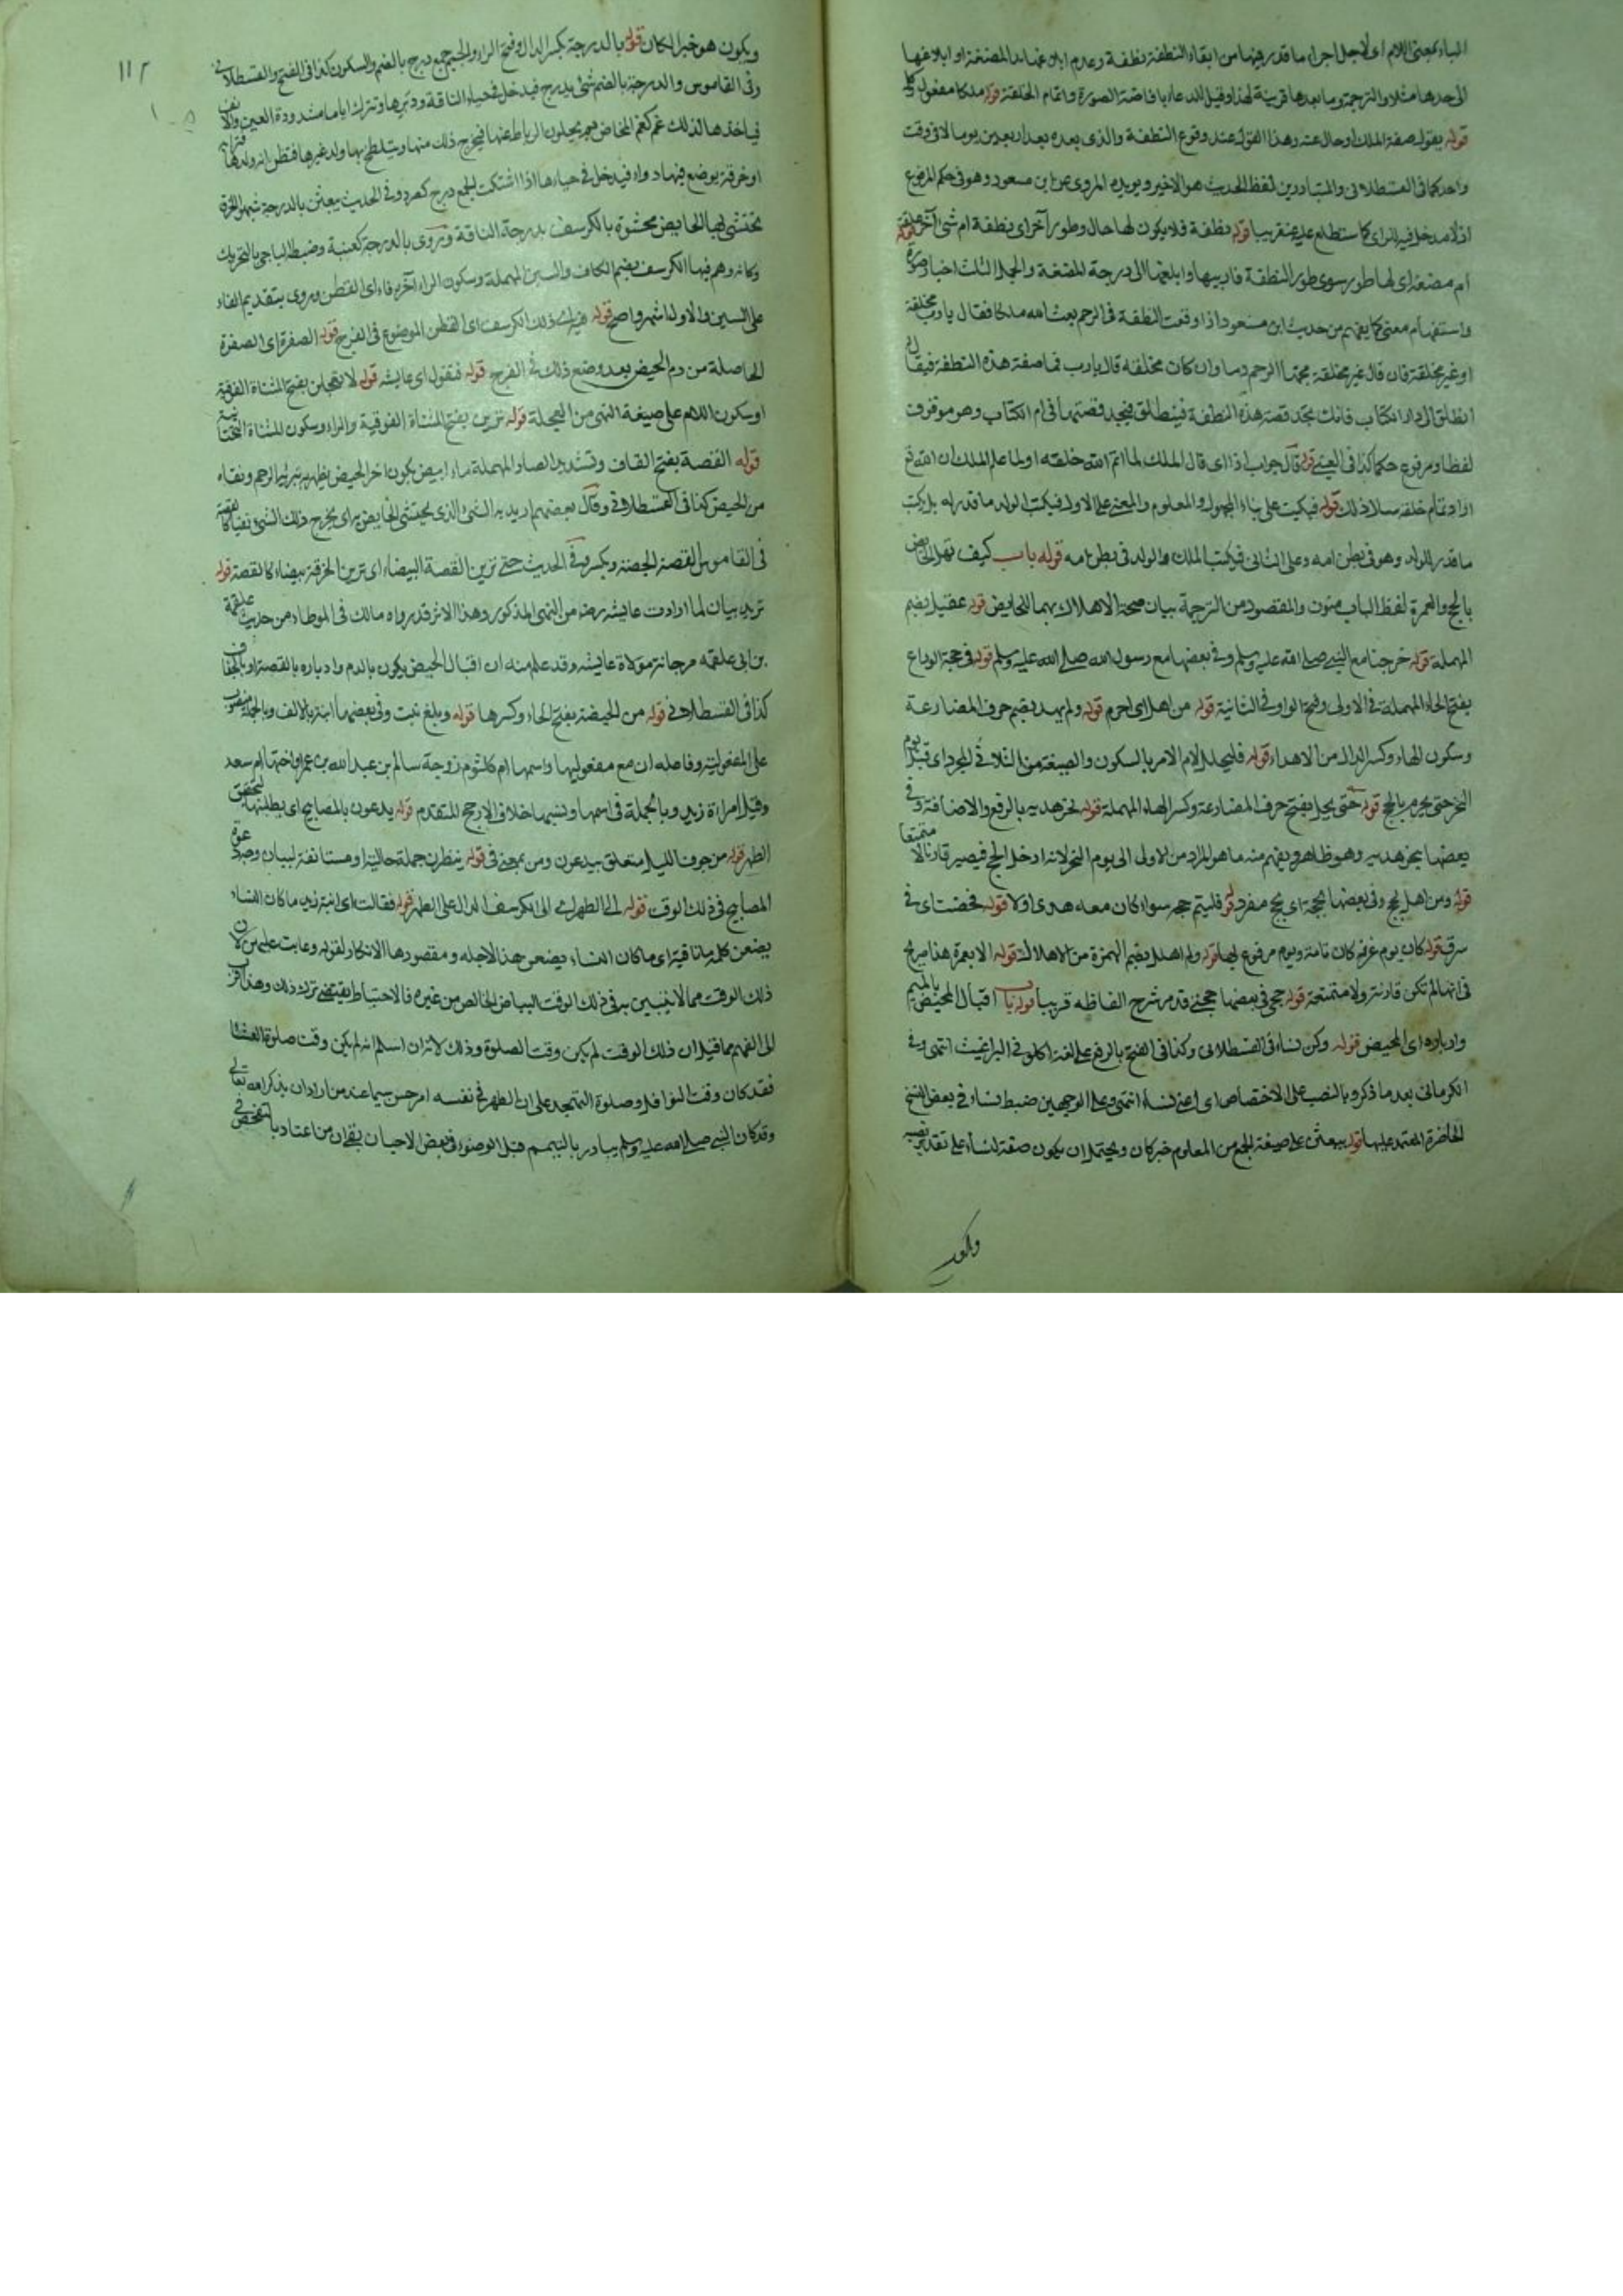 الباء بمعنى اللام اى لاجل اجراء ما قدر فيها من ابقاء النطفة نطفة وعدم ابلاغها الى المضغة او ابلاغها
الى حدها مثلا والترجمة وما بعدها قرينة لهذا وقيل الدعاء بافاضة الصورة واتمام الخلقة قوله ملكا مفعول وكل
قوله يقول صفة الملك او حال عنه وهذا القول عند وقوع النطفة والذى بعده بعد اربعين يوما لا فى وقت
واحد كما فى القسطلانى والمتبادر من لفظ الحديث هو الاخير ويويده المروى عن ابن مسعود وهو فى حكم المرفوع
اذ لا مدخل فيه للراى كما ستطلع عليه عنقريبا قوله نطفة فلا يكون لها حال وطور آخر اى نطفة ام شئ آخر قوله علقة
ام مضغة اى لها طور سوى طور النطفة فاربيها وابلغها الى درجة المضغة والجمل الثلث اخبار صورة
واستفهام معنى كما يفهم من حديث ابن مسعود اذا وقعت النطفة فى الرحم بعث الله ملكا فقال يا رب مخلقة
او غير مخلقة فان قال غير مخلقة مجها الرحم دما وان كان مخلقة قال يا رب فما صفة هذه النطفة فيقال له
انطلق الى ام الكتاب فانك تجد قصة هذه النطفة فينطلق فيجد قصتها فى ام الكتاب وهو موقوف
لفظا ومرفوع حكما كذا فى العينى قوله قال جواب اذا اى قال الملك لما اتم الله خلقه او لما علم الملك ان الله تع
اراد تمام خلقه سال ذلك قوله فيكتب على بناء المجهول والمعلوم والمعنى على الاول فيكتب لولد ما قدر له بل يكتب
ما قدر للولد وهو فى بطن امه وعلى الثانى فيكتب الملك والولد فى بطن امه قوله باب كيف تهل الحائض
بالحج والعمرة لفظ الباب منون والمقصود من الترجمة بيان صحة الاهلال بهما للحايض قوله عقيل بضم
المهملة قوله خرجنا مع النبى صلى الله عليه وسلم وفى بعضها مع رسول الله صلى الله عليه وسلم قوله فى حجة الوداع
بفتح الحاء المهملة فى الاولى وفتح الواو فى الثانية قوله من اهل اى احرم قوله ولم يهد بضم حرف المضارعة
وسكون الهاء وكسر الدال من الاهداء قوله فليحلل لام الامر بالسكون والصيغة من الثلاثى المجرد اى قبل يوم
النحر حتى يحرم بالحج قوله حتى يحل بفتح حرف المضارعة وكسر الحاء المهملة قوله نحر هديه بالرفع والاضافة وفى
بعضها بنحر هديه وهو ظاهر ويفهم منه ما هو المراد من الاولى الى يوم النحر لانه ادخل الحج فيصير قارنا لا متمتعا
قوله ومن اهل بحج وفى بعضها بحجة اى بحج مفرد قوله فليتم حجه سواء كان معه هدى او لا قوله فحضت اى فى
سرف قوله كان يوم عرفة كان تامة ويوم مرفوع بها قوله ولم اهلل بضم الهمزة من الاهلال قوله الا بعمرة هذا صريح
فى انها لم تكن قارنة ولا متمتعة قوله حجى فى بعضها حجتى قد مر شرح الفاظه قريبا قوله باب اقبال المحيض بالميم
وادباره اى المحيض قوله وكن نساء فى القسطلانى وكذا فى الفتح بالرفع على لغة اكلونى البراغيث انتهى وفى
الكرمانى بعد ما ذكر وبالنصب على الاختصاص اى اعنى نساء انتهى وعلى الوجهين ضبط نساء فى بعض النسخ
الحاضرة المعتمد عليها قوله يبعثن على صيغة الجمع من المعلوم خبر كان ويحتمل ان يكون صفة لنساء على تقدير نصبه
ويكون
١١٢
ويكون هو خبرا لكان قوله بالدرجة بكسر الدال وفتح الراء والجيم جمع درج بالضم والسكون كذا فى الفتح والقسطلانى
وفى القاموس والدرجة بالضم شئ يدرج فيدخل فى حياء الناقة ودبرها وتترك اياما مشدودة العين والانف
فياخذها لذلك غم كغم المخاض ثم يحلون الرباط عنها فيخرج ذلك منها ويلطخ بها ولد غيرها فتظن انه ولدها فترامه
او خرقة يوضع فيها دواء فيدخل فى حياءها اذا اشتكت الجمع درج كصرد وفى الحديث يبعثن بالدرجة شبهوا الخرق
تحتشى بها الحايض محشوة بالكرسف بدرجة الناقة وتروى بالدرجة كعنبة وضبط الباجى بالتحريك
وكانه وهم فيها الكرسف بضم الكاف والسين المهملة وسكون الراء آخره فاء اى القطن ويروى بتقديم الفاء
على السين والاول اشهر واصح قوله فيه اى فى ذلك الكرسف اى القطن الموضوع فى الفرج قوله الصفرة اى الصفرة
الحاصلة من دم الحيض بعد وضع ذلك فى الفرج قوله فتقول اى عايشه قوله لا تعجلن بفتح المثناة الفوقية
او سكون اللام على صيغة النهى من العجلة قوله ترين بفتح المثناة الفوقية والراء وسكون المثناة التحتانية
قوله القصة بفتح القاف وتشديد الصاد المهملة ماء ابيض يكون آخر الحيض يظهر به تبرئة الرحم ونقاء
من الحيض كذا فى القسطلانى وقال بعضهم اريد به الشئ الذى يحتشى الحايض به اى يخرج ذلك الشئ نقيا كالقصة
فى القاموس القصة الجصة ويكسر وفى الحديث حتى ترين القصة البيضاء اى ترين الخرقة بيضاء كالقصة قوله
تريد بيان لما ارادت عايشه رض من النهى المذكور وهذا الاثر قد رواه مالك فى الموطاء من حديث علقمة
بن ابى علقمه مرجانة مولاة عايشه وقد علم منه ان اقبال الحيض يكون بالدم وادباره بالقصة او بالجفاف
كذا فى القسطلانى قوله من الحيضة بفتح الحاء وكسرها قوله وبلغ بنت وفى بعضها ابنة بالالف وبالجملة منصوب
على المفعولية وفاعله ان مع مفعوليها واسمها ام كلثوم زوجة سالم بن عبد الله بن عمر او اختها ام سعد
وقيل امراة زيد وبالجملة فى اسمها ونسبها خلاف الارجح المتقدم قوله يدعون بالمصابيح اى يطلبنها لتحقق
الطهر قوله من جوف الليل متعلق بيدعون ومن بمعنى فى قوله ينظرن جملة حالية او مستانفة لبيان وجه دعوة
المصابيح فى ذلك الوقت قوله الى الطهر اى الى الكرسف الدال على الطهر قوله فقالت اى ابنة زيد ما كان النساء
يصنعن كلمة ما نافية اى ما كان النساء يصنعن هذا لاجله ومقصودها الانكار لقوله وعابت عليهن لان
ذلك الوقت مما لا يتبين به فى ذلك الوقت البياض الخالص من غيره فالاحتياط يقتضى ترك ذلك وهذا اقرب
الى الفهم مما قيل ان ذلك الوقت لم يكن وقت الصلوة وذلك لانه ان اسلم انه لم يكن وقت صلوة العشاء
فقد كان وقت النوافل وصلوة التهجد على ان الطهر فى نفسه امر حسن سيما عند من اراد ان يذكر الله تعالى
وقد كان النبى صلى الله عليه وسلم يبادر بالتيمم قبل الوضوء فى بعض الاحيان بقى ان من اعتاد بالتفحص فى